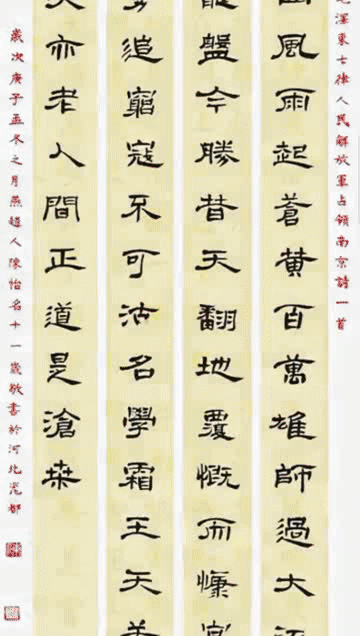 毛澤東七律人民解放軍占領南京詩一首
山風雨起蒼黄百萬雄師過大江
龍盤今勝昔天翻地覆慨而慷宜
追窮寇不可沽名學霜王天若
天亦老人間正道是滄桒
歲次庚子孟冬之月燕趙人陳怡名十一歲敬書於河北瓷都